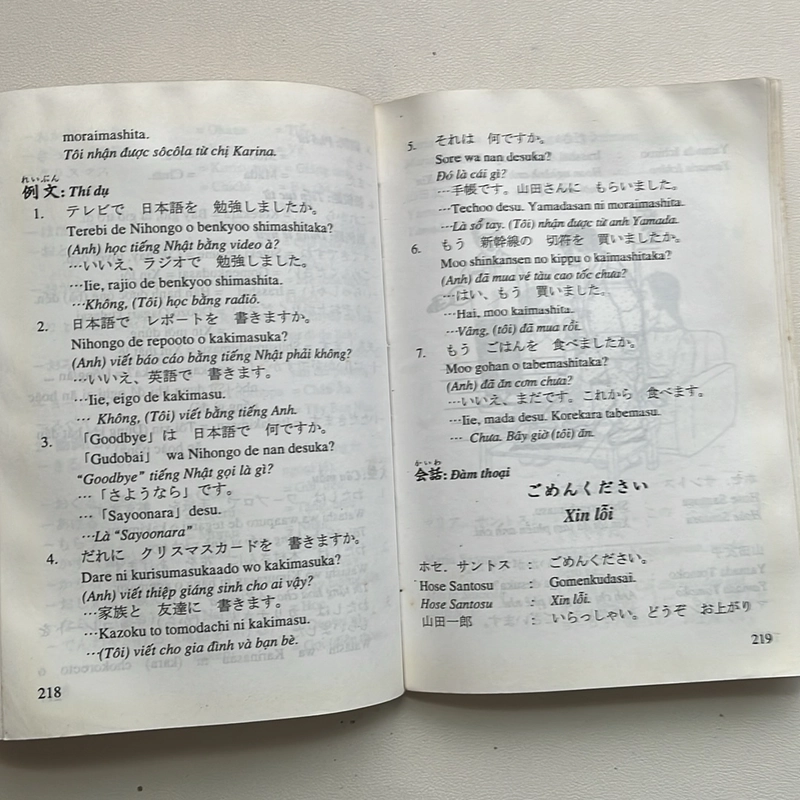 moraimashita.
Tôi nhận được sôcôla từ chị Karina.
れいぶん
例文: Thí dụ
1. テレビで 日本語を 勉強しましたか。
Terebi de Nihongo o benkyoo shimashitaka?
(Anh) học tiếng Nhật bằng video à?
…いいえ、ラジオで 勉強しました。
…Iie, rajio de benkyoo shimashita.
…Không, (Tôi) học bằng rađiô.
2. 日本語で レポートを 書きますか。
Nihongo de repooto o kakimasuka?
(Anh) viết báo cáo bằng tiếng Nhật phải không?
…いいえ、英語で 書きます。
…Iie, eigo de kakimasu.
… Không, (Tôi) viết bằng tiếng Anh.
3. 「Goodbye」は 日本語で 何ですか。
「Gudobai」 wa Nihongo de nan desuka?
“Goodbye” tiếng Nhật gọi là gì?
…「さようなら」です。
…「Sayoonara」desu.
…Là “Sayoonara”
4. だれに クリスマスカードを 書きますか。
Dare ni kurisumasukaado wo kakimasuka?
(Anh) viết thiệp giáng sinh cho ai vậy?
…家族と 友達に 書きます。
…Kazoku to tomodachi ni kakimasu.
…(Tôi) viết cho gia đình và bạn bè.
218
5. それは 何ですか。
Sore wa nan desuka?
Đó là cái gì?
…手帳です。山田さんに もらいました。
…Techoo desu. Yamadasan ni moraimashita.
…Là sổ tay. (Tôi) nhận được từ anh Yamada.
6. もう 新幹線の 切符を 買いましたか。
Moo shinkansen no kippu o kaimashitaka?
(Anh) đã mua vé tàu cao tốc chưa?
…はい、もう 買いました。
…Hai, moo kaimashita.
…Vâng, (tôi) đã mua rồi.
7. もう ごはんを 食べましたか。
Moo gohan o tabemashitaka?
(Anh) đã ăn cơm chưa?
…いいえ、まだです。これから 食べます。
…Iie, mada desu. Korekara tabemasu.
… Chưa. Bây giờ (tôi) ăn.
かいわ
会話: Đàm thoại
ごめんください
Xin lỗi
ホセ．サントス : ごめんください。
Hose Santosu : Gomenkudasai.
Hose Santosu : Xin lỗi.
山田一郎 : いらっしゃい。どうぞ お上がり
219